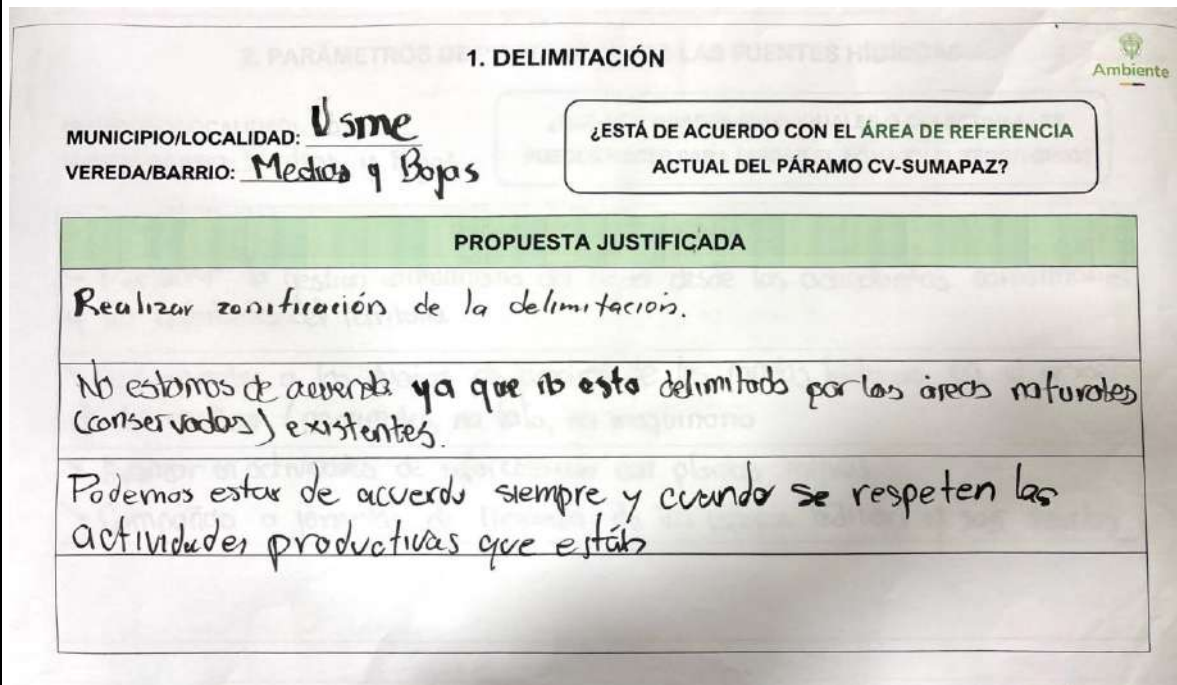 1. DELIMITACIÓN
Ambiente
MUNICIPIO/LOCALIDAD: Usme
VEREDA/BARRIO: Medios y Bajos
¿ESTÁ DE ACUERDO CON EL ÁREA DE REFERENCIA
ACTUAL DEL PÁRAMO CV-SUMAPAZ?
PROPUESTA JUSTIFICADA
Realizar zonificación de la delimitación.
No estamos de acuerdo ya que no esta delimitado por las áreas naturales
(conservados) existentes.
Podemos estar de acuerdo siempre y cuando se respeten las
actividades productivas que están